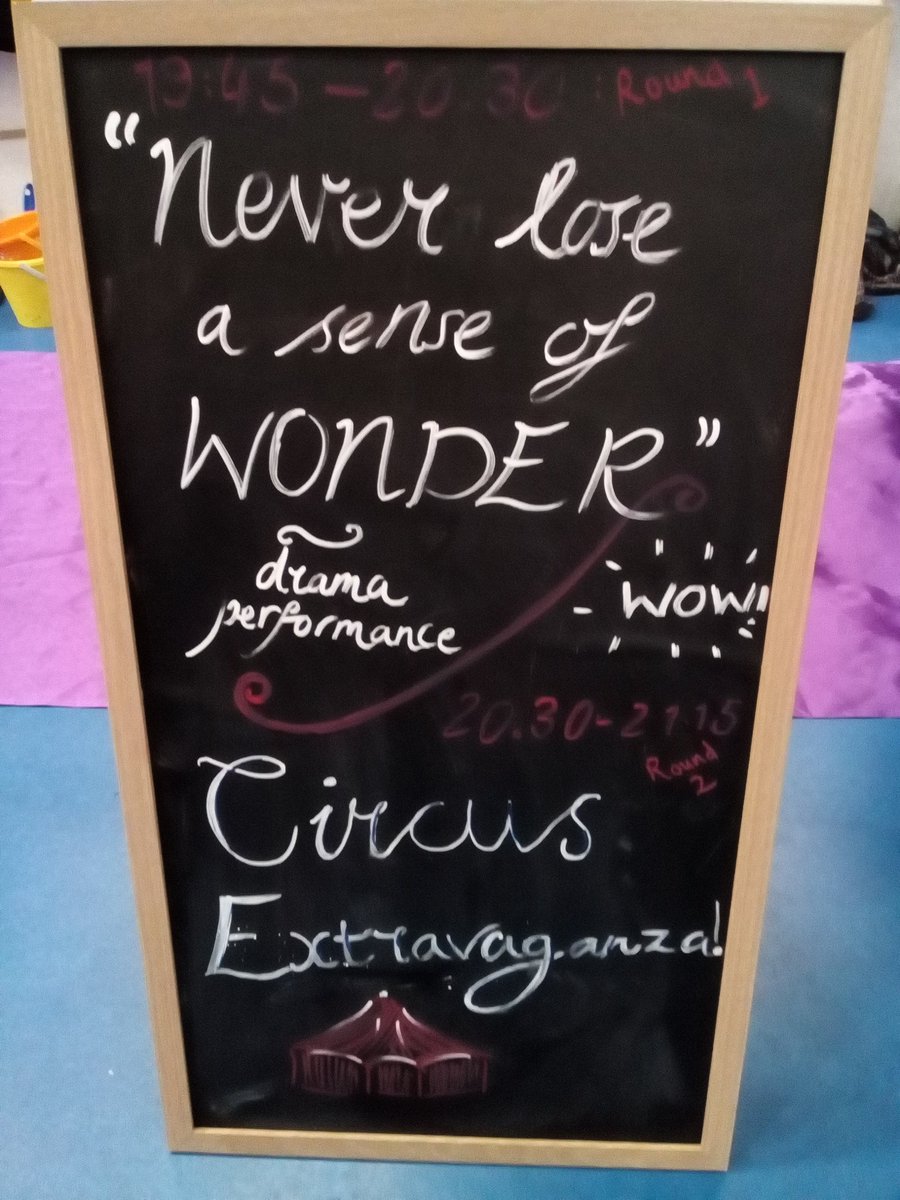 19:45 - 20.30 : Round 1
"Never lose
a sense of
WONDER"
drama
performance
WOW!!
20.30-21.15
Round
2
Circus
Extravaganza!